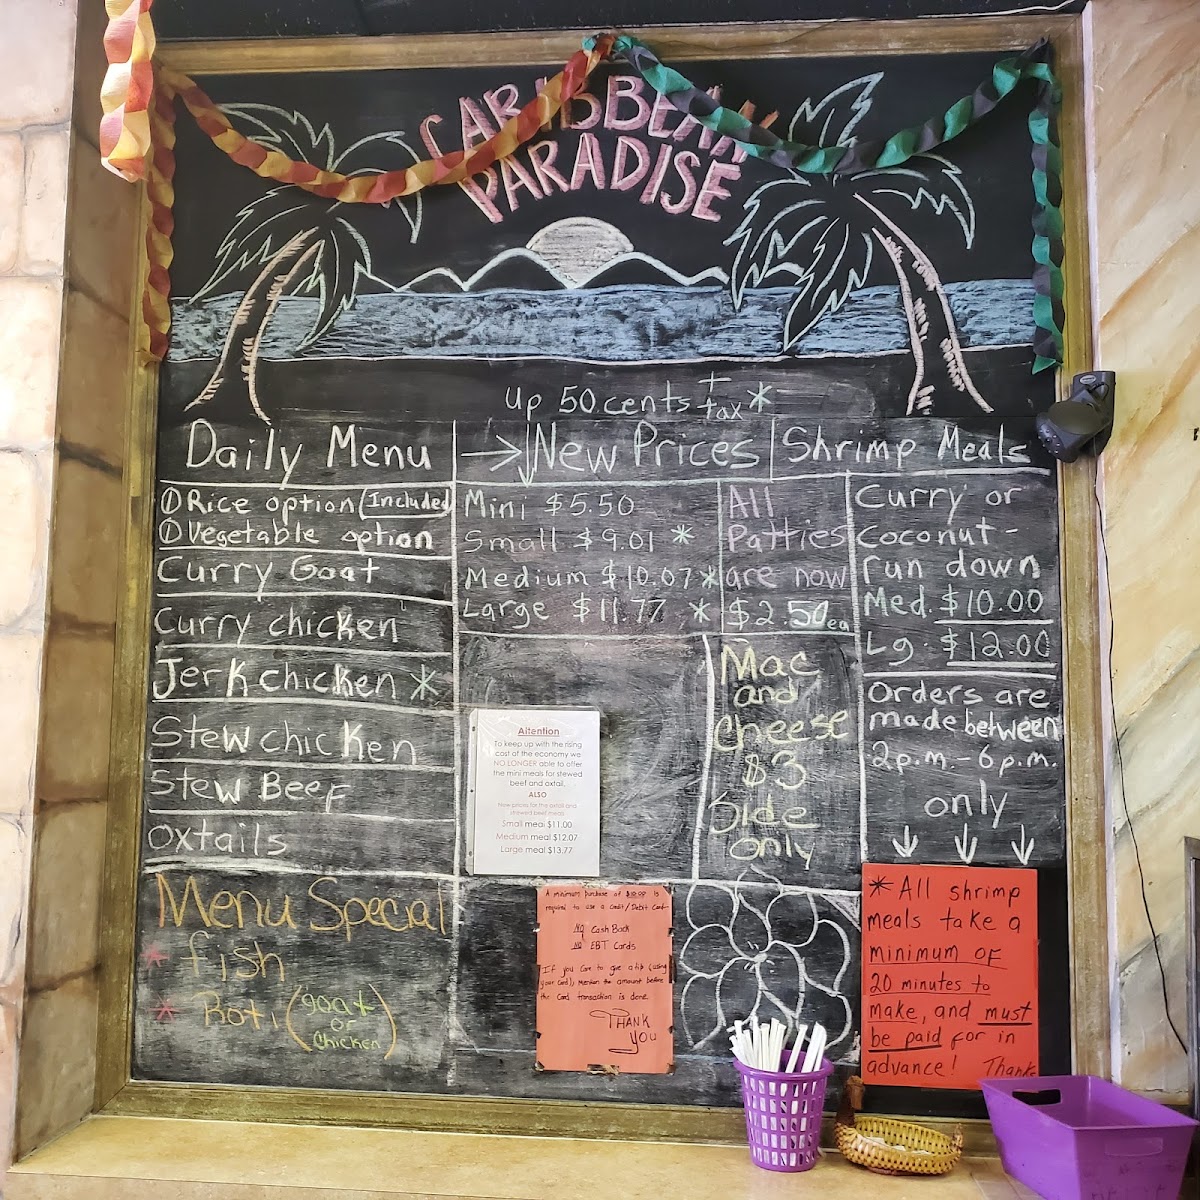 CARIBBEAN
PARADISE
up 50 cents + tax *
Daily Menu
① Rice option (Included
① Vegetable option
Curry Goat
Curry chicken
Jerk chicken *
Stew chicken
Stew Beef
oxtails
Menu Special
* fish
* Roti (goat
or
chicken)
→ New Prices
Mini $5.50
Small $9.01 *
Medium $10.07 *
Large $11.77 *
All
Patties
are now
$2.50ea
Mac
and
Cheese
$3
Side
only
Attention
To keep up with the rising
cost of the economy we
NO LONGER able to offer
the mini meals for stewed
beef and oxtail.
ALSO
New prices for the oxtail and
stewed beef meals
Small meal $11.00
Medium meal $12.07
Large meal $13.77
A minimum purchase of $10.00 is
required to use a credit/Debit Card
NO Cash Back
NO EBT Cards
If you care to give a tip (using
your card), mention the amount before
the card transaction is done.
THANK
YOU
Shrimp Meals
Curry or
Coconut-
run down
Med. $10.00
Lg. $12.00
Orders are
made between
2p.m.-6p.m.
only
↓ ↓ ↓
* All shrimp
meals take a
minimum OF
20 minutes to
make, and must
be paid for in
advance! Thanks